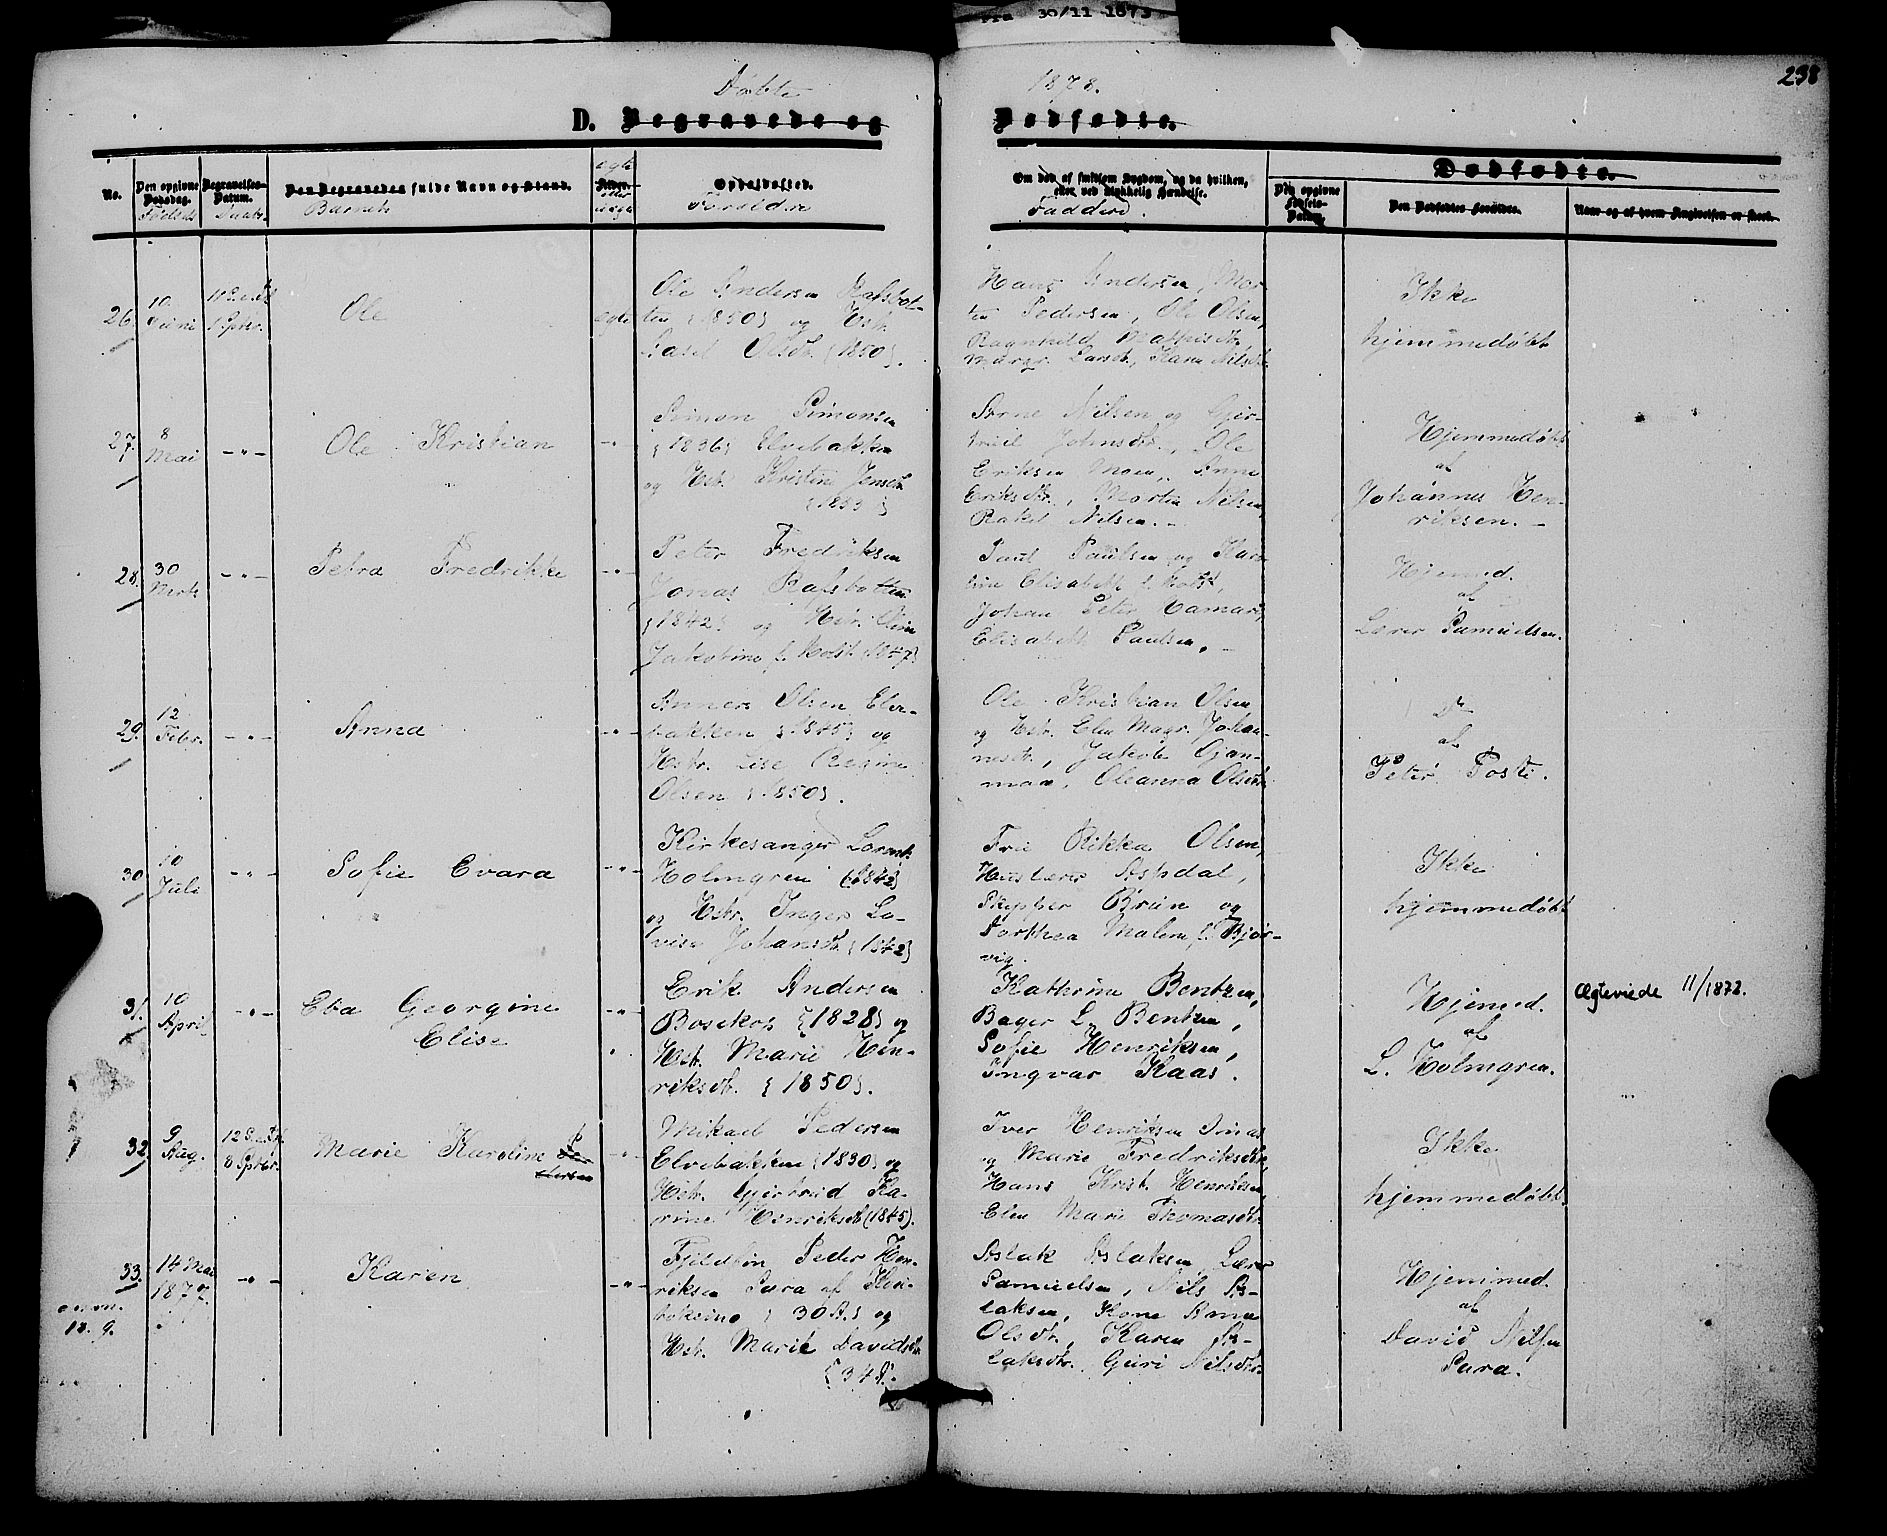 Fra 30/11 1873
238
Døbte
1878.
D. Begravede og
Dødfødte.
Dødfødte.
No.
Den opgivne Dødsdag.
Fødsels
Begravelses-Datum.
Daabs
Den Begravedes fulde Navn og Stand.
Barnets
ægte
Alder.
eller
uægte
Opholdssted.
Forældre
Om død af smitsom Sygdom, og da hvilken,
eller ved ulykkelig Hændelse.
Faddere.
Den opgivne Fødsels-Datum.
Den Dødfødtes Forældre.
Naar og af hvem Angivelsen er skeet.
26.
10
Juni
1 Septbr.
Ole
ægte
Ole Andersen Rafsbot-
ten {1850} og Hstr.
Olsdtr. {1850}.
Hans Andersen, Mor-
ten Pedersen, Ole Olsen,
Ragnhild Mathisdtr.
Margr. Larsdtr., Karen Nilsdtr.
Ikke
hjemmedøbt
27.
8
Mai
-"-
Ole Kristian
-"-
Simon Simonsen
{1836} Elvebakken
og Hstr. Kristine Jensdtr.
{1853}
Arne Nilsen og Gjer-
trud Johnsdtr., Ole
Eriksen Moen, Anne
Eriksdtr., Morten Nilsen,
Rakel Nilsen.-
Hjemmedøbt
af
Johannes Hen-
riksen.-
28.
30
Marts
-"-
Petra Fredrikke
-"-
Peter Fredriksen
Jonas Rafsbotten
{1842} og Hstr. Oline
Jakobine f. Holst {1847}
Paul Paulsen og Karo-
line Elisabeth f. Holst,
Johan Peter Hamari,
Elisabeth Paulsen.-
Hjemmed.
af
Lærer Samuelsen.
29.
12
Febr.
-"-
Anna
-"-
Anders Olsen Elve-
bakken {1845} og
Hstr. Lise Regine
Olsen {1850}.
Ole Kristian Olsen
og Hstr. Elen Magr. Johan-
nesdtr., Jakob Gjan-
man, Oleanna Olsdtr.
Do
af
Peter Posti.
30
10
Juli
-"-
Sofie Evara
-"-
Kirkesanger Lorents
Holmgren {1842}
og Hstr. Inger Lo-
vise Johansdtr. {1842}
Frie Rikka Olsen,
Huuslærer Aspdal,
Skipper Brun og
Dorthea Malene f. Bjør-
vig.
Ikke
hjemmedøbt
31.
10
April
-"-
Eva Georgine
Elise
-"-
Erik Andersen
Bosekop {1828} og
Hstr. Marie Hen-
riksdtr. {1850}.
Kathrine Bentzen,
Bager L. Bentzen,
Sofie Henriksen,
Ingvar Kaas.
Hjemmed.
af
L. Holmgren.
Ægteviede 11/1872.
32
9
Aug.
8 Septbr.
Marie Karoline
-"-
Mikael Pedersen
Elvebakken {1830} og
Hstr. Gjertrud Ka-
rine Henriksdtr. (1845).
Iver Henriksen
og Marie Fredriksdtr.,
Hans Krist. Henriksen,
Elen Marie Thomasdtr.
Ikke
hjemmedøbt
33.
14 Mai
187
-"-
Karen
-"-
Fjeldfin Peder Hen-
riksen Sara af Kau-
tokeino { 30 A.} og
Hstr. Marit Davidsdtr.
{34}.
Aslak Aslaksen, Lærer
Samuelsen, Nils As-
laksen, Kone Anne
Olsdtr., Karen As-
laksdtr. Guri Nilsdtr.
Hjemmed.
af
David Nilsen
Sara.